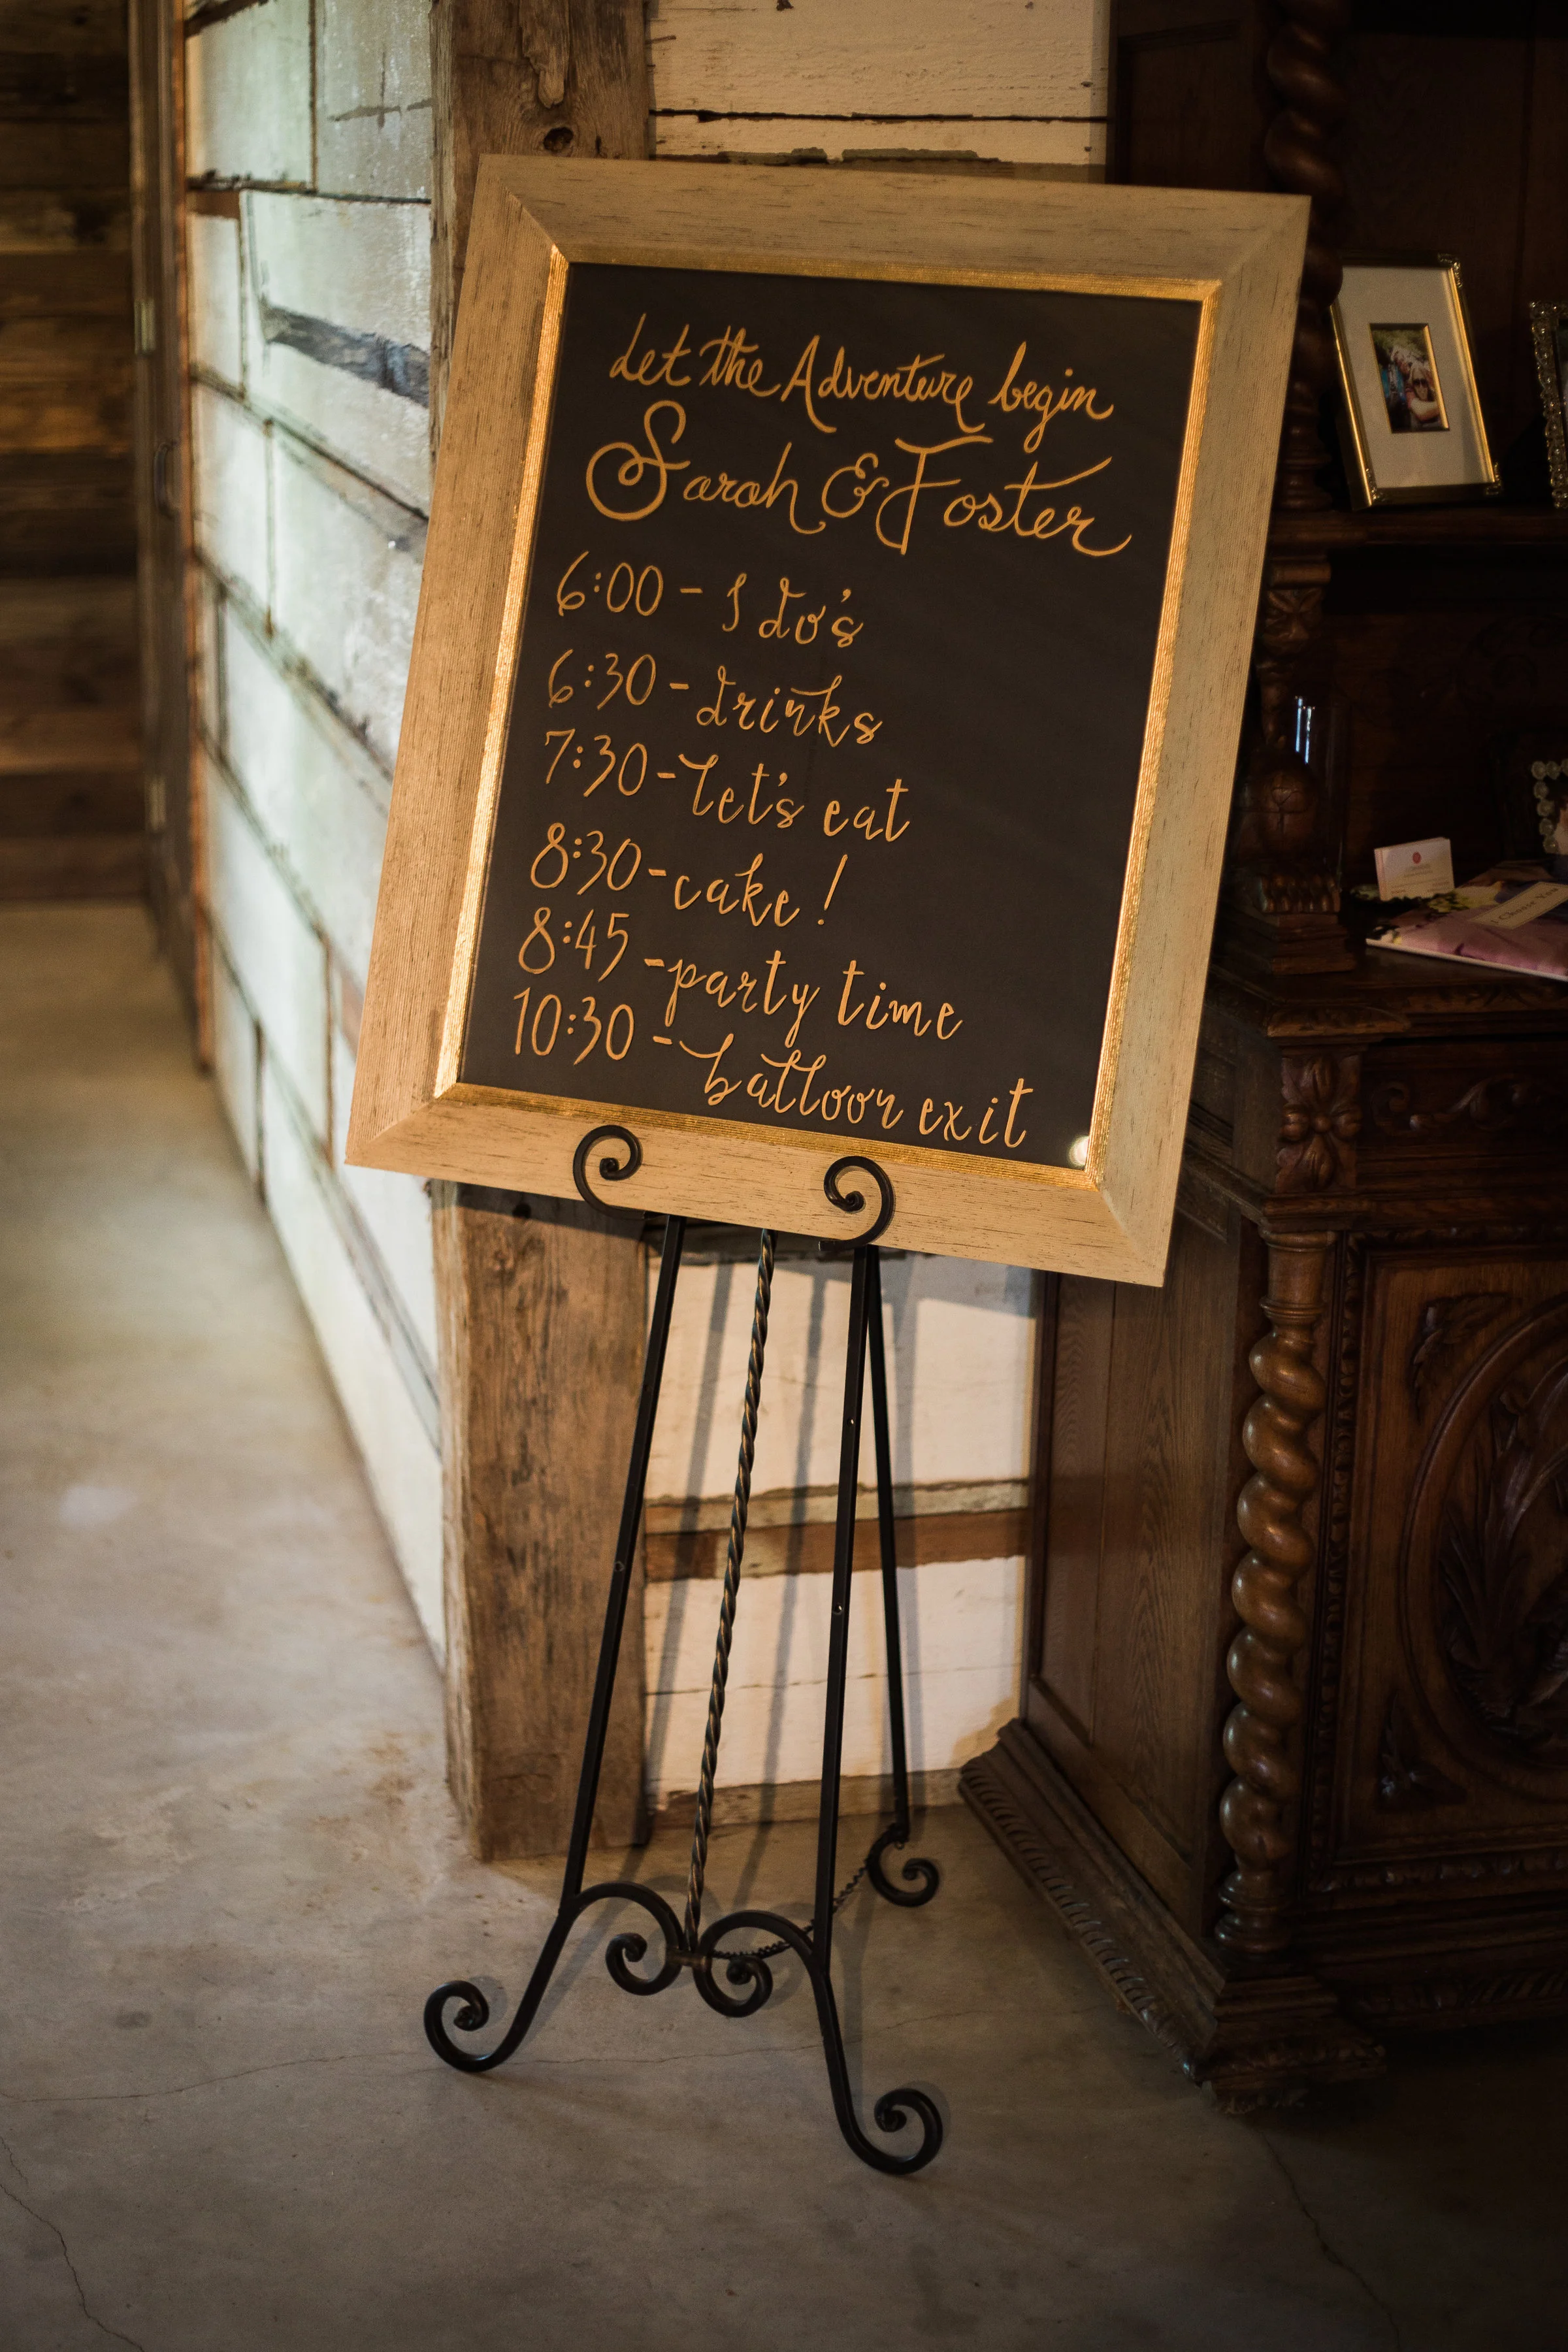 Let the Adventure begin
Sarah & Foster
6:00 - I do's
6:30 - drinks
7:30 - let's eat
8:30 - cake!
8:45 - party time
10:30 - balloon exit